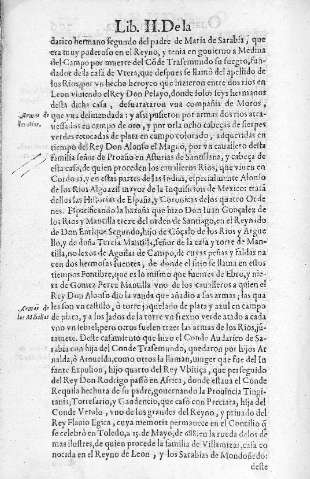 Lib. II. De la
darico hermano segundo del padre de Maria de Sarabia, que
era muy poderoso en el Reyno, y tenia en gouierno a Medina
del Campo por muerte del Côde Trasemundo su suegro, fun-
dador de la casa de Vtera, que despues se llamó del apellido de
los Rios, por vn hecho heroyco que hizieron entre dos rios en
Leon viuiendo el Rey Don Pelayo, donde solos seys hermanos
desta dicha casa, desuarataron vna compañia de Moros,
que y assi pusieron por armas dos rios atra-
uessados en campo de oro, y por orla ocho cabeças de sierpes
verdes rotocadas de plata en campo colorado, adquiridas en
tiempo del Rey Don Alonso el Magno, por vn cauallero desta
familia señor de Proaño en Asturias de Santillana, y cabeça de
esta casa, de quien proceden los caualleros Rios, que viuen en
Cordoua, y en estas partes de las Indias, especialmente Alonso
de los Rios Alguazil mayor de la Inquisicion de Mexico: trata
dellos las Historias de España, y Coronicas de las quatro Orde
nes. Especificando la hazaña que hizo Don Iuan Gonçalez de
los Rios y Mantilla tieze del orden de Santiago, en el Reynado
de Don Enrique Segundo, hijo de Gôçalo de los Rios y Argue
llo, y de doña Tercia Mantilla, señor de la casa y torre de Man-
tilla, no lexos de Aguilar de Campo, de cuyas peñas y faldas na
cen dos hermosas fuentes, de donde el sitio se llama en estos
tiempos Fontibre, que es lo mismo que fuentes de Ebro, y nie-
ta de Gomez Perez Mantilla vno de los caualleros a quien el
Rey Don Alonso dio la vanda que añadio a sus armas, las qua
les son vn castillo, ò torre jaquelado de plata y azul en campo
de plata, y a los lados de la torre vn sierpo verde atado a cada
vno vn lebrel, pero otros suelen traer las armas de los Rios, jû-
tamente. Deste casamiento que hizo el Conde Audarico de Sa-
rabia con hija del Conde Trasemundo, quedaron por hijos Ar
nalda, ò Arnualda, como otros la llaman, muger que fue del In
fante Expulion, hijo quarto del Rey Vbitiça, que perseguido
del Rey Don Rodrigo passò en Africa, donde estaua el Conde
Requila hechura de su padre, gouernando la Prouincia Tingi-
tania, Tortesario, y Gaudencio, que casò con Preciara, hija del
Conde Verulo, vno de los grandes del Reyno, y priuado del
Rey Flauio Egica, cuya memoria permanece en el Concilio q̃
se celebrò en Toledo, a 15. Mayo, de 688. en la rueda de los de
mas ilustres, de quien procede la familia de Villamizar, casa co
nocada en el Reyno de Leon, y los Sarabias de Mondoñedo:
deste
Armas de
los Rios.
Armas de
los Mãtillas